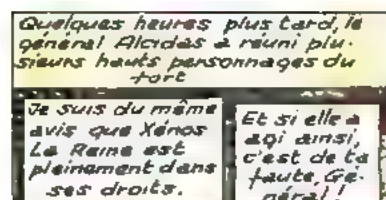 Quelques heures plus tard, le
général Alcidas a réuni plu-
sieurs hauts personnages du
fort
Je suis du même
avis que Xénos
La Reine est
pleinement dans
ses droits.
Et si elle a
agi ainsi,
c'est de ta
faute, Gé-
néral !